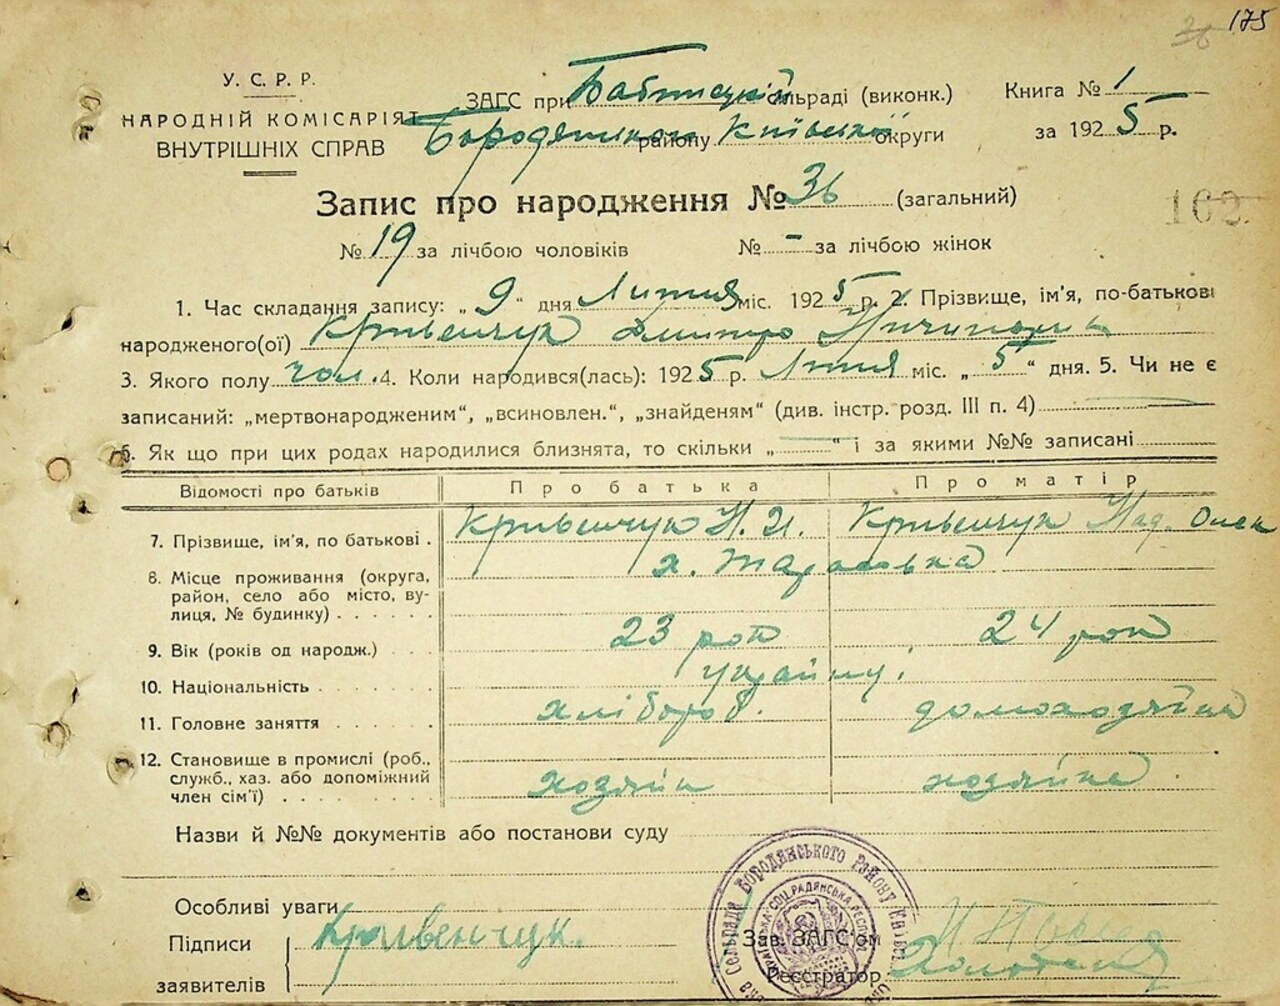 175
36
У. С. Р. Р.
НАРОДНІЙ КОМІСАРІЯТ
ВНУТРІШНІХ СПРАВ
ЗАГС при Бабинецкій сільраді (виконк.)
Бородянського району Київської округи
Книга № 1
за 1925 р.
Запис про народження № 36 (загальний)
162.
№ 19 за лічбою чоловіків № – за лічбою жінок
1. Час складання запису: „ 9 “ дня Лютня міс. 1925 р. 2. Прізвище, ім'я, по-батькові
народженого(ої) Кривенчук Дмитро Ничипорик
3. Якого полу чол. 4. Коли народився(лась): 1925 р. Лютня міс. „ 5 “ дня. 5. Чи не є
записаний: „мертвонародженим“, „всиновлен.“, „знайденям“ (див. інстр. розд. III п. 4)
6. Як що при цих родах народилися близнята, то скільки „ — “ і за якими №№ записані
Відомості про батьків Про батька Про матір
7. Прізвище, ім'я, по батькові . Кривенчук Н. И. Кривенчук Над. Олек
8. Місце проживання (округа,
район, село або місто, ву-
лиця, № будинку) . . . . . .
х. Тарасовка
9. Вік (років од народж.) . . . 23 роки 24 роки
10. Національність . . . . . . українці
11. Головне заняття . . . . . хлібороб. домохозяйка
12. Становище в промислі (роб.,
служб., хаз. або допоміжний
член сім'ї) . . . . . . . .
хозяїн хозяйка
Назви й №№ документів або постанови суду
Особливі уваги
Підписи
заявителів
Кривенчук.
Зав. ЗАГС'ом
Реєстратор
Сельради Бородянського району Київ